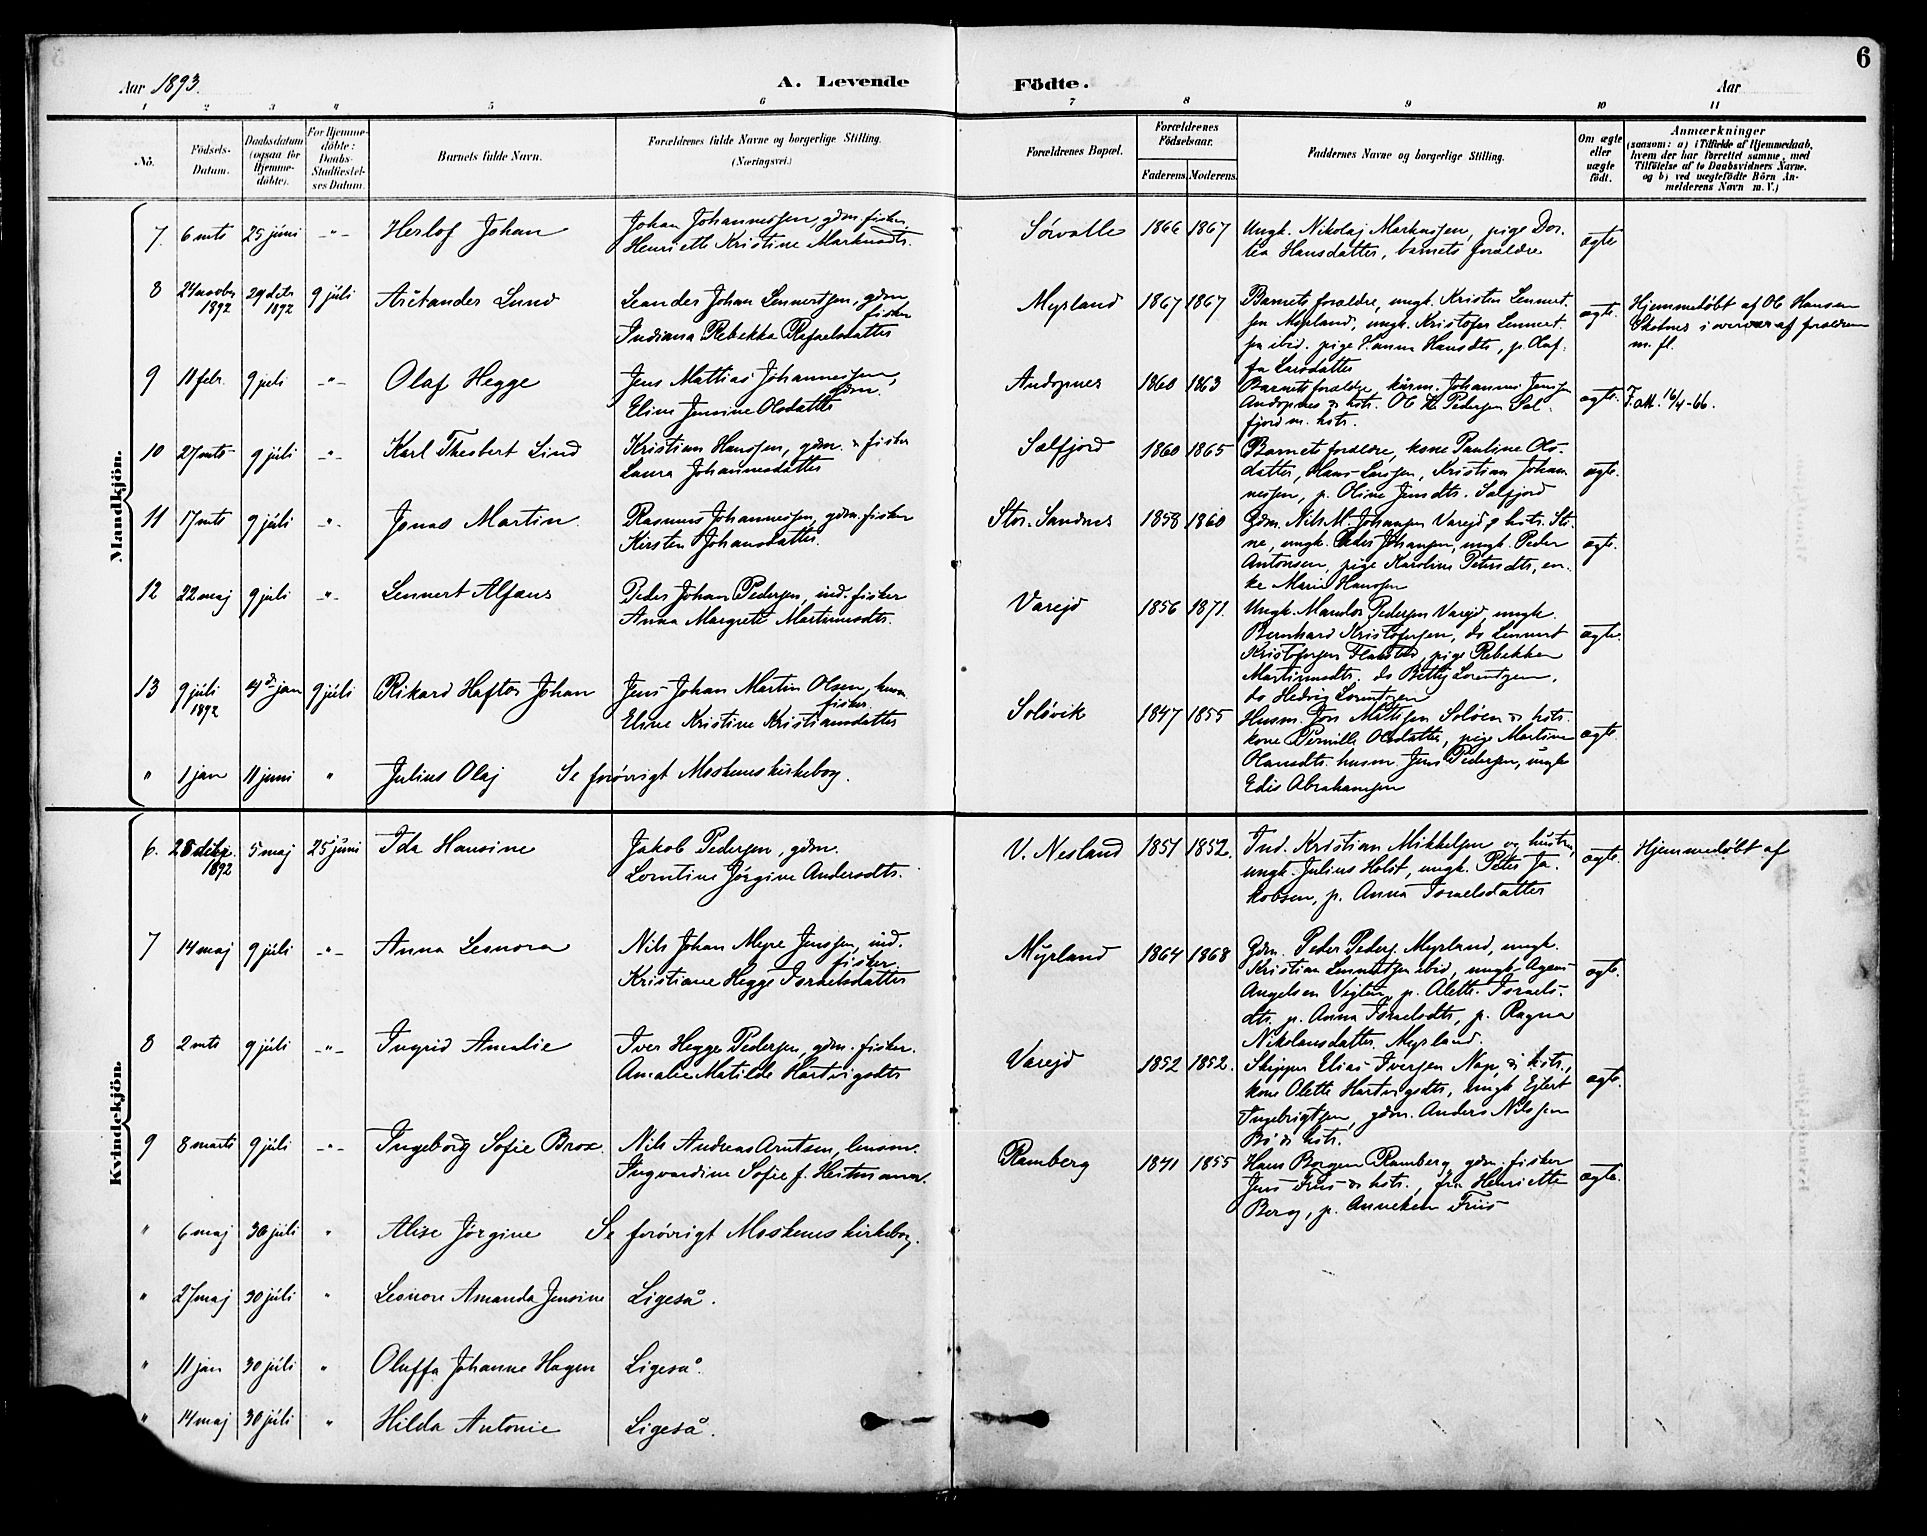 6
Aar 1893.
A. Levende
Födte.
Aar
1 2 3 4 5 6 7 8 9 10 11
No.
Födsels-
Datum.
Daabsdatum
(ogsaa for
Hjemme-
döbte).
For Hjemme-
döbte:
Daabs-
Stadfæstel-
ses Datum.
Barnets fulde Navn.
Forældrenes fulde Navne og borgerlige Stilling.
(Næringsvei.)
Forældrenes Bopæl.
Forældrenes
Födselsaar.
Faderens. Moderens.
Faddernes Navne og borgerlige Stilling.
Om ægte
eller
uægte
födt.
Anmærkninger
(saasom: a) i Tilfælde af Hjemmedaab,
hvem der har forrettet samme, med
Tilföielse af to Daabsvidners Navne.
og b) ved uægtefödte Börn An-
melderens Navn m. V.)
Mandkjön.
7. 6 mts 25 juni -"- Herlof Johan
Johan Johannessen, gdm. fisker
Henriette Kristine Markusdtr.
Sørvalle 1866 1867
Ungk. Nikolaj Markussen, pige Dor-
tea Hansdatter, barnets forældre
ægte
8 24 novbr 1892 29 dcbr 1892 9 júli Lund
Leander Johan Lennertsen, gdm.
fisker
Indiana Rebekka Rafaelsdatter
Myrland 1867 1867
Barnets forældre, ungk. Kristen Lennert-
sen Myrland, ungk. Kristofer Lennert-
sen ibid. pige Hanna Hansdtr, p. Olaf-
fa Larsdatter
ægte.
Hjemmedøbt af Ol. Hansen
i overvær af forældrene
m. fl.
9 11 febr. 9 juli -"- Olaf Hegge
Jens Mattias Johannessen,
gdm.
Eline Jensine Olsdatter
Andopnes 1860 1863
Barnets forældre, Johannes Jenssen
Andopnes & hstr. Ol. H. Pedersen Sel-
fjord m. hstr.
ægte.
F. att. 16/4-66.
10 27 mts 9 júli -"- Karl Thesbert Lind
Kristian Hanssen, gdm. & fisker
Laura Johannesdatter
Selfjord 1860 1865
Barnets forældre, kone Pauline Ols-
datter, Hans Larssen, Kristian Johan-
nessen, p. Oline Jensdtr. Selfjord
ægte.
11 17 mts 9 júli -"- Jonas Martin
Rasmus Johannessen, gdm. fisker
Kirsten Johansdatter.
Stor-Sandnes 1858 1860
Gdm. Nils M. Johansen Varejd & hstr. Sti-
ne, ungk. Peder Johansen, ungk. Peder
Antonsen, pige Karoline Petersdtr, en-
ke Marie Hanssen
ægte.
12 22 maj 9 júli -"- Lennert Alfæus
Peder Johan Pedersen, ind. fisker
Anna Margrete Martinusdtr.
Varejd 1856 1871.
Ungk. Pedersen Varejd, ungk.
Bernhard Kristofersen, do Lennert
Kristofersen Flakstad, pige Rebekka
Martinusdtr. do Betty Lorentzen,
do Hedvig Lorentzen
ægte.
13 9 júli 1892 4de jan 9 júli Rikard Haftor Johan
Jens Johan Martin Olsen, husm.
fisker
Eline Kristine Kristiansdatter
Soløvik 1847 1855
Husm. Jon Mattisen Soløen & hstr.
kone Pernille Olsdatter, pige Martine
Olausdtr. husm. Jens Pedersen, ungk
Edis Abrahamsen
ægte.
" 1 jan 11 juni " Julius Olaj Se forøvrigt Moskenes kirkebog.
Kvindekjön.
6. 28 1892 5 maj 25 juni Ida Hansine
Jakob Pedersen, gdm.
Lorntine Jørgine Andersdtr.
V. Nesland 1851 1852.
Ind. Kristian Mikkelsen og hustru,
ungk. Julius Holst, ungk. Peter Ja-
kobsen, p. Anna Israelsdatter
ægte.
Hjemmedøbt af
7 14 maj 9 júli -"- Anna Leonora
Nils Johan Myre Jenssen, ind.
fisker
Kristiane Hegge Israelsdatter
Myrland 1864 1868
Gdm. Peder Peders. Myrland, ungk.
Kristian Lennertsen ibid, ungk.
Angelsen p. Alette Israels-
dtr, p. Anna Israelsdtr, p. Ragna
Nikolausdatter Myrland.
ægte.
8 2 mts 9 júli -"- Ingrid Amalie
Iver Hegge Pedersen, gdm. fisker.
Amalie Matilde Hartvigsdtr
Varejd 1852 1852.
Skipper Elias Iversen Nap, & hstr.,
kone Olette Hartvigsdtr, ungk Ejlert
Ingebrigtsen, gdm. Anders Nilssen
Bø & hstr.
ægte.
9 8 marts 9 júli -"- Ingeborg Sofie Brox.
Nils Andreas Arntsen, lensm.
Ingvardine Sofie f. Hertmann.
Ramberg 1841 1855
Hans Borgen Ramberg gdm. fisker
Jens Friis & hstr., frk Henriette
Berg, p. Anneken Friis
ægte.
" 6 maj 30 júli " Alise Jørgine Se forøvrigt Moskenes kirkebog.
" 27 maj 30 júli " Leonore Amanda Jensine Ligeså.
" 11 jan 30 júli " Oluffa Johanne Hagen Ligeså.
" 14 maj 30 júli " Hilda Antonie Ligeså.